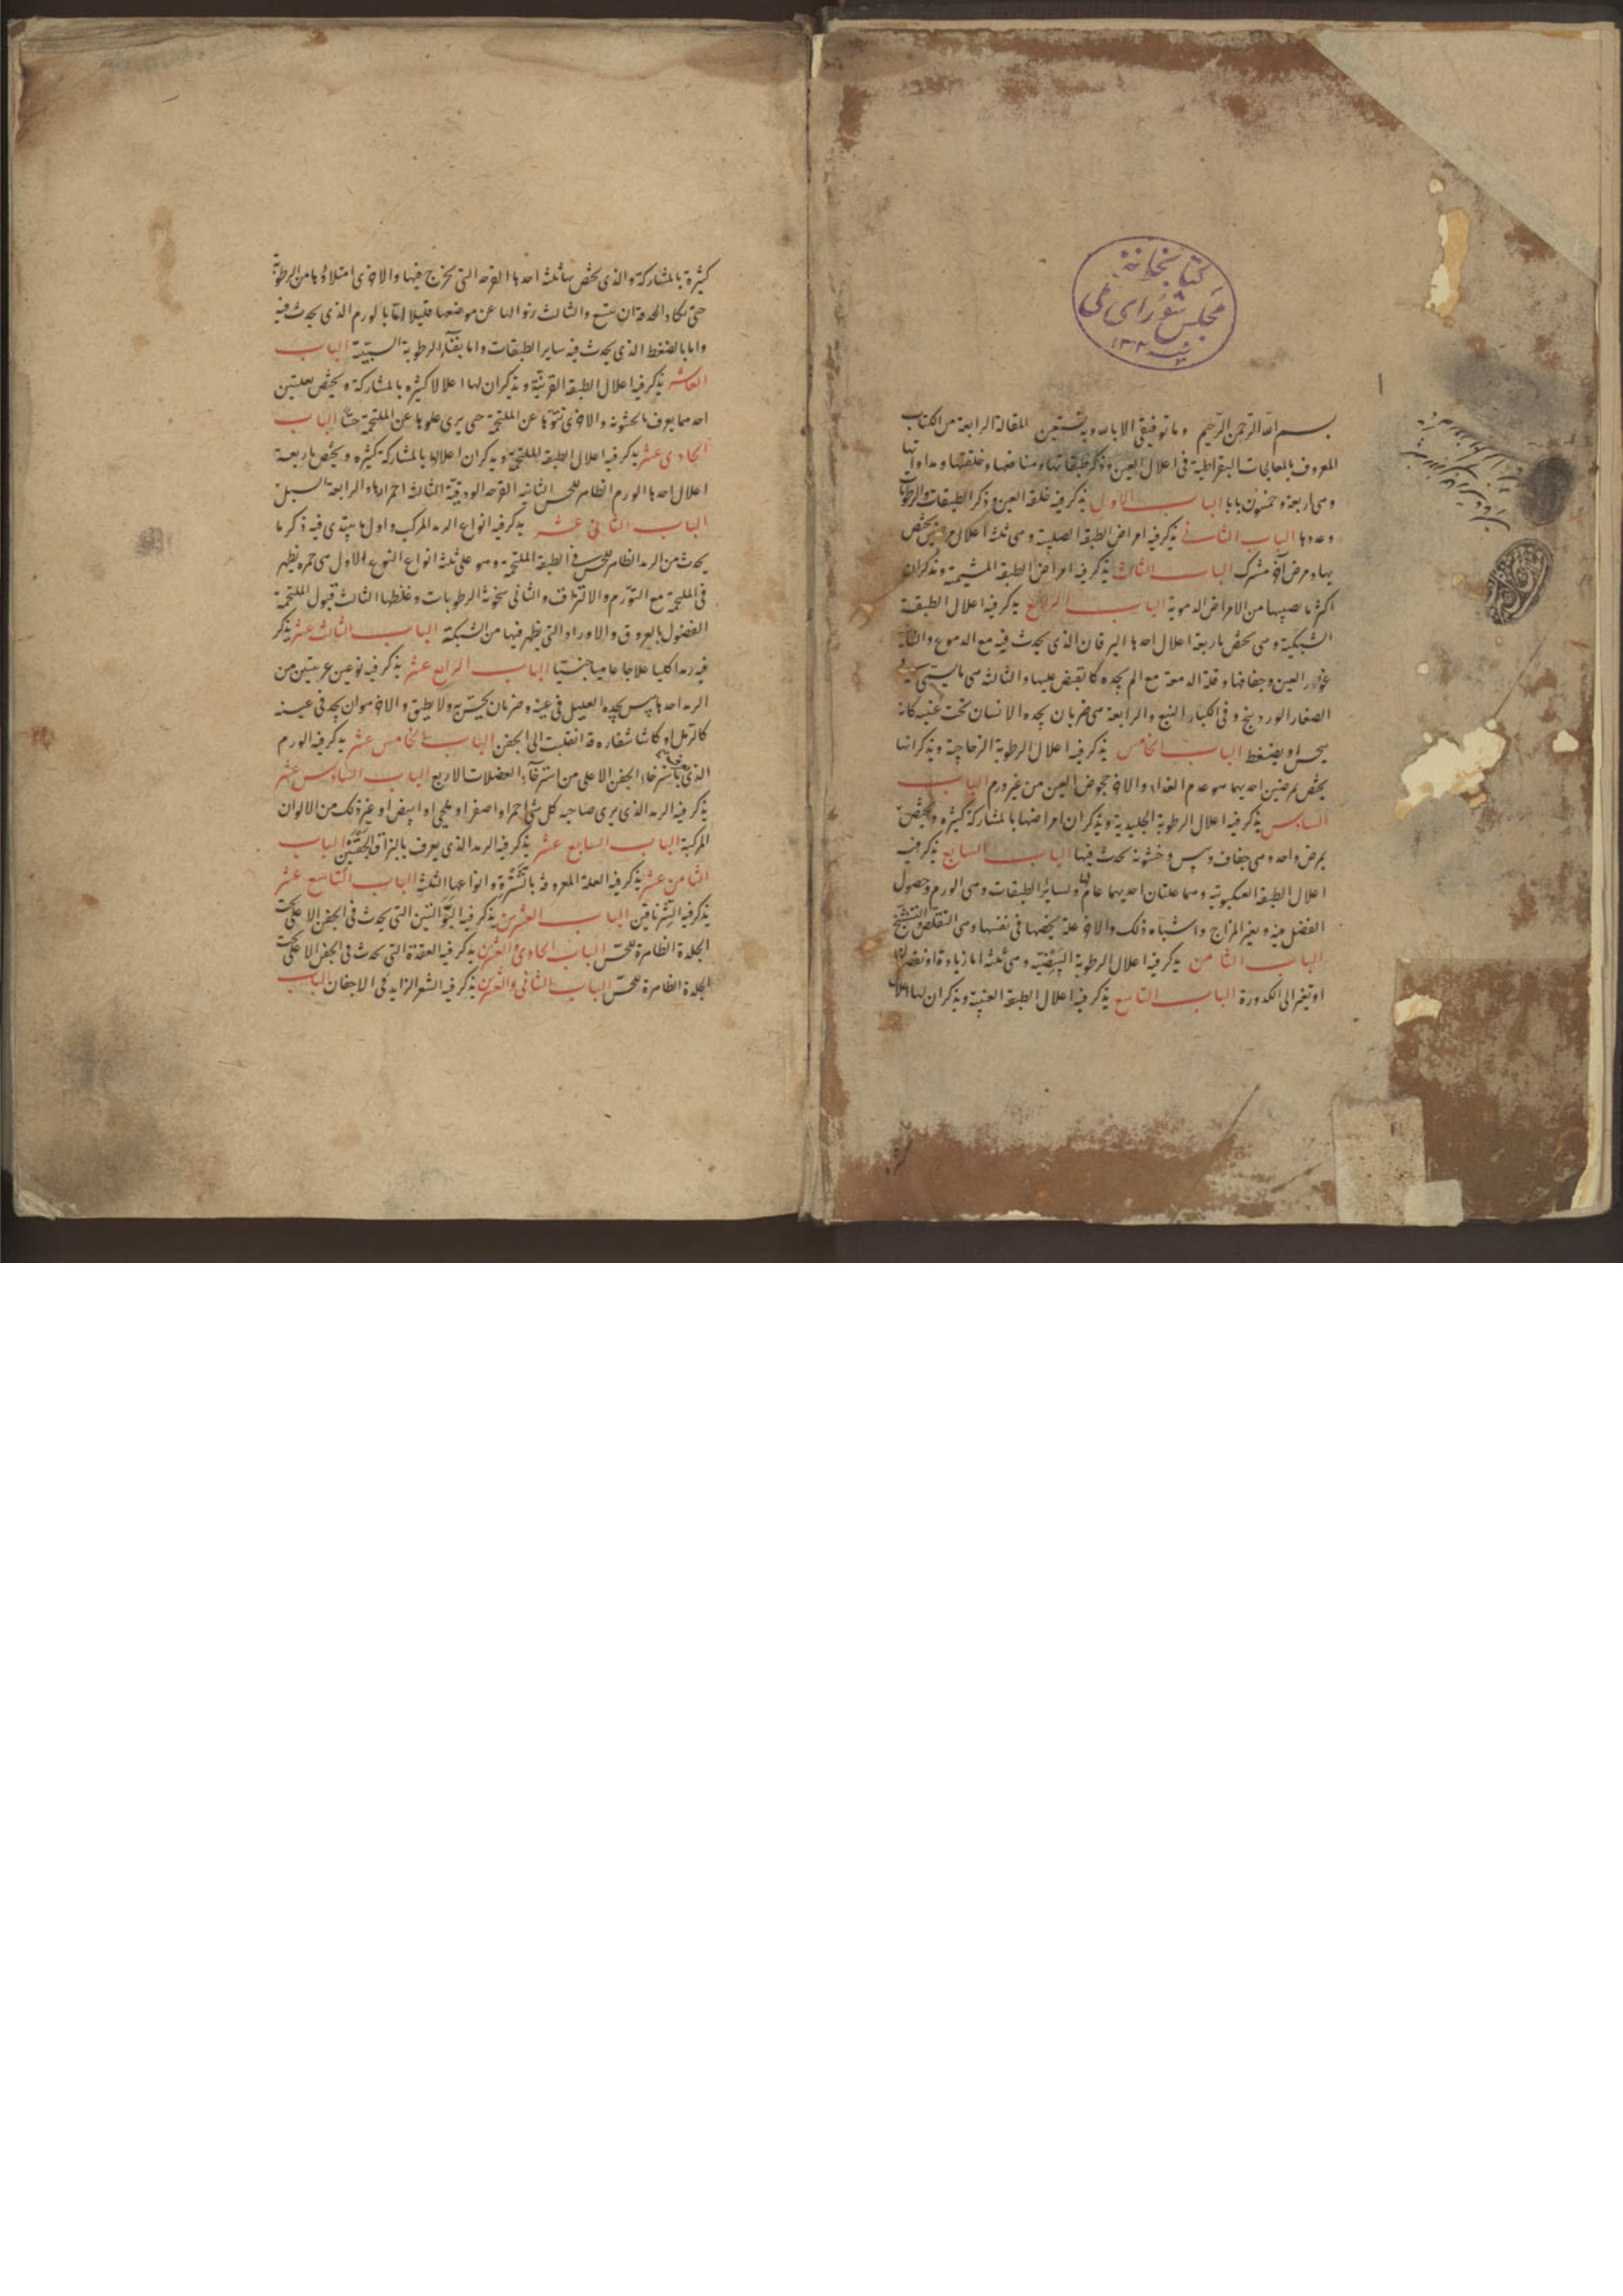 كتابخانة
مجلس شورای ملی
١٣٠٢
بسم الله الرحمن الرحيم وما توفيقى الا بالله وبه نستعين المقالة الرابعة من الكتاب
المعروف بالمعالجات البقراطية فى اعلال العين وذكر طبقاتها ومنافعها وخلقتها ومداواتها
وهى اربعة وخمسون بابا الباب الاول يذكر فيه خلقة العين وذكر الطبقات والرطوبات
وعددها الباب الثانى يذكر فيه امراض الطبقة الصلبة وهى ثلثة اعلال يختص
بها ومرض آخر مشترك الباب الثالث يذكر فيه امراض الطبقة المشيمة ويذكر ان
اكثر ما يصيبها من الامراض الدموية الباب الرابع يذكر فيه اعلال الطبقة
الشبكية وهى يختص باربعة اعلال احدها اليرقان الذى يحدث فيه مع الدموع والثانية
غور العين وجفافها وقلة الدمعة مع الم يجده كما تقبض عليها والثالث هى ما يسمى فى
الصغار الوردينج وفى الكبار النبع والرابعة هى ضربان يجده الانسان تحت عينيه كانه
ينخس او يضغط الباب الخامس يذكر فيه اعلال الرطوبة الزجاجية ويذكر انها
يختص بمرضين احديهما هو عدم الغذاء والاخر جحوض العين من غير ورم الباب
السادس يذكر فيه اعلال الرطوبة الجليدية ويذكر ان امراضها بالمشاركة كثيرة ويختص
بمرض واحد وهى جفاف ويبس وخشونة يحدث فيها الباب السابع يذكر فيه
اعلال الطبقة العنكبوتية وهما علتان احديهما عام لها ولسائر الطبقات وهى الورم وحصول
الفضل فيه وتغير المزاج واشباه ذلك والاخر علة يخصها فى نفسها وهى التقلص والتشنج
الباب الثامن يذكر فيه اعلال الرطوبة البيضية وهى ثلثة اما زيادة او نقصان
او تغير الى الكدورة الباب التاسع يذكر فيه اعلال الطبقة العنبية ويذكر ان لها اعلال
كثيرة بالمشاركة والذى يختص بها ثلثة احدها القرحة التى تخرج فيها والاخرى امتلاؤها من الرطوبة
حتى تكاد الحدقة ان تتسع والثالث زوالها عن موضعها قليلا اما بالورم الذى يحدث فيه
واما بالضغط الذى يحدث فيه ساير الطبقات واما بفناء الرطوبة البيضية الباب
العاشر يذكر فيه اعلال الطبقة القرنية ويذكر ان لها اعلالا كثيرة بالمشاركة ويختص بعلتين
احدهما يعرف بالخشونة والاخرى نتوها عن الملتحمة حتى يرى علوها عن الملتحمة حسا الباب
الحادى عشر يذكر فيه اعلال الطبقة الملتحمة ويذكر ان اعلالها بالمشاركة كثيرة ويختص باربعة
اعلال احدها الورم الظاهر للحس الثانية القرحة الودقية الثالثة احمرارها والرابعة السبل
الباب الثانى عشر يذكر فيه انواع الرمد المركب واولها يبتدى فيه ذكر ما
يحدث من الرمد الظاهر للحس فى الطبقة الملتحمة وهو على ثلثة انواع النوع الاول هى حمرة يظهر
فى الملتحمة مع التورم والانتزاف والثانى سخونة الرطوبات وغلظها الثالث قبول الملتحمة
الفضول بالعروق والاوراد التى يظهر فيها من الشبكة الباب الثالث عشر يذكر
فيه رمدا كليا علاجا عاميا جنسيا الباب الرابع عشر يذكر فيه نوعين غريبين من
الرمد احدها يبس يجده العليل فى عينه وضربان يحس به ولا يطيق والاخر هو ان يجد فى عينه
كالرمل او كانما شفاره قد انقلبت الى الجفن الباب الخامس عشر يذكر فيه الورم
الذى باسترخاء الجفن الاعلى من استرخاء العضلات الاربع الباب السادس عشر
يذكر فيه الرمد الذى يرى صاحبه كل شى احمر او اصفر او ابيض او غير ذلك من الالوان
المركبة الباب السابع عشر يذكر فيه الرمد الذى يعرف بالتزاق الجفنين الباب
الثامن عشر يذكر فيه العلة المعروفة بالشترة وانواعها الثلثة الباب التاسع عشر
يذكر فيه الشرناقين الباب العشرين يذكر فيه التوثتين التى يحدث فى الجفن الاعلى تحت
الجلدة الظاهرة للحس الباب الحادى والعشرين يذكر فيه العقدة التى تحدث فى الجفن الاعلى تحت
الجلدة الظاهرة للحس الباب الثانى والعشرين يذكر فيه الشعر الزايد فى الاجفان الباب